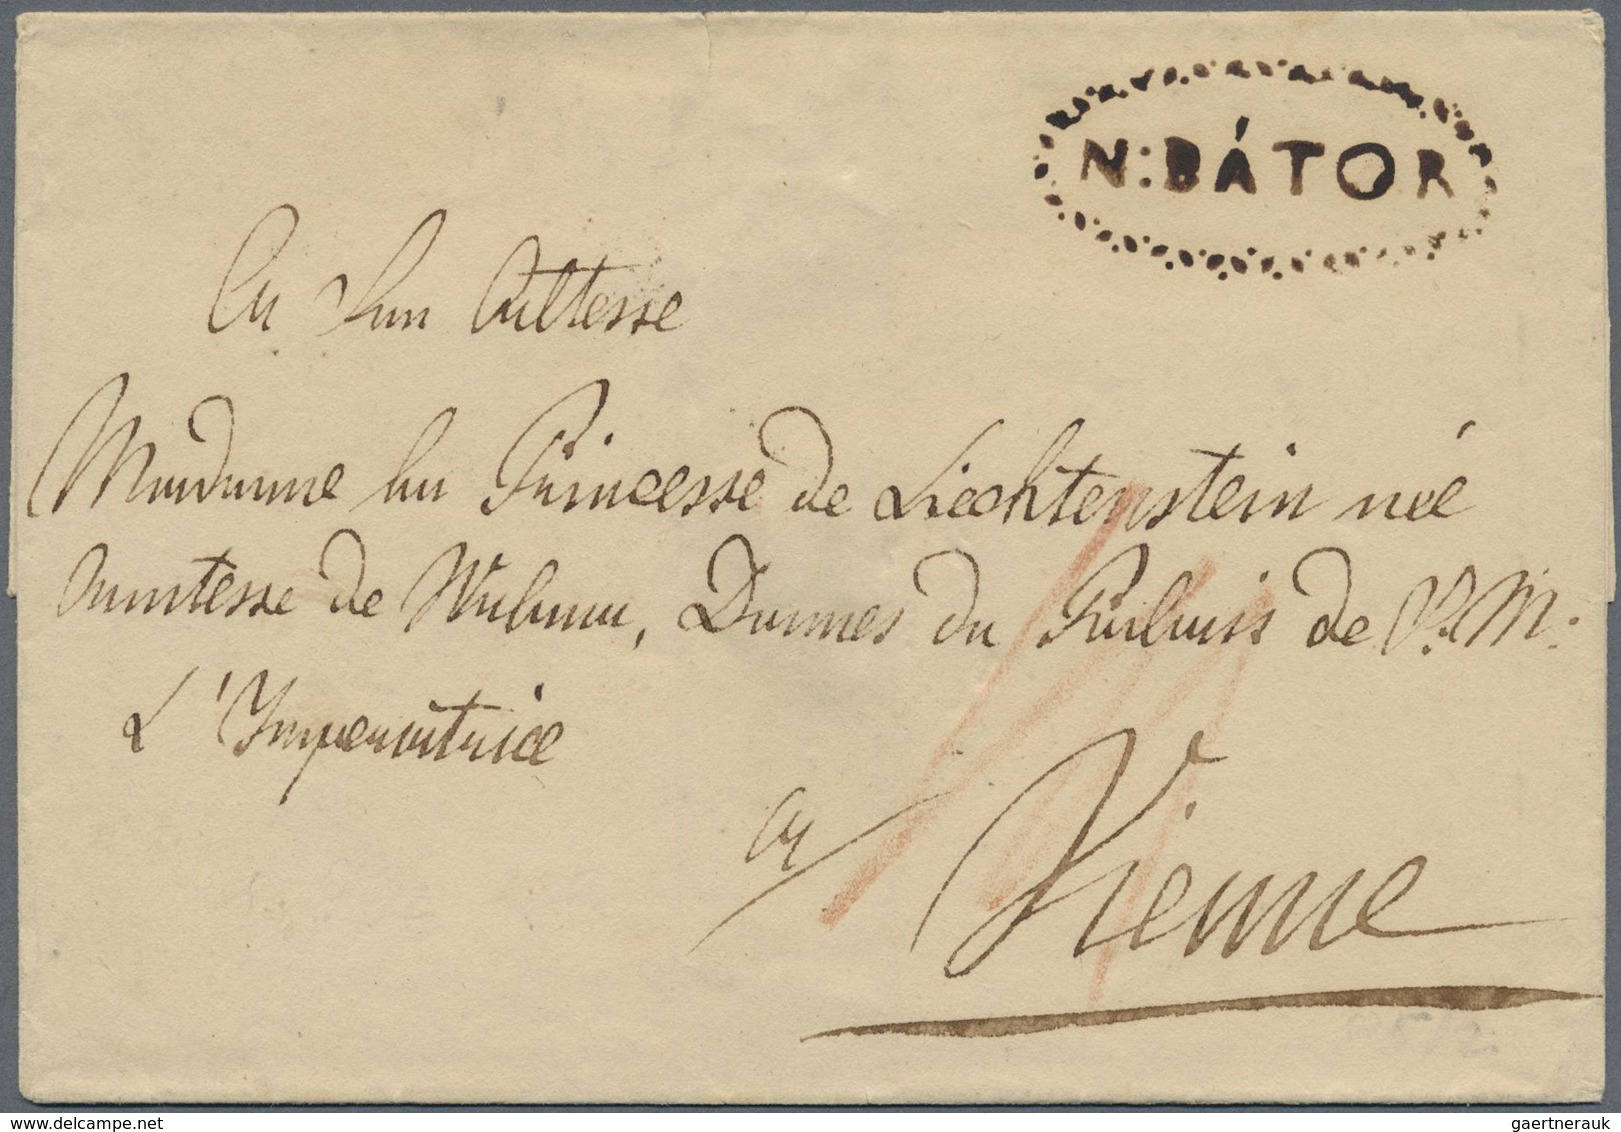 N: BÁTOR
A Son Altesse
Madame la Princesse de Liechtenstein née
Comtesse de Wrbna, Dames du Palais de S. M.
L'Imperatrice
a
Vienne
gaertnerauk